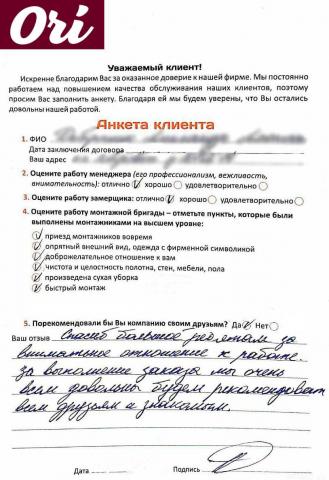 Ori
Уважаемый клиент!
Искренне благодарим Вас за оказанное доверие к нашей фирме. Мы постоянно
работаем над повышением качества обслуживания наших клиентов, поэтому
просим Вас заполнить анкету. Благодаря ей мы будем уверены, что Вы остались
довольны нашей работой.
Анкета клиента
1. ФИО
Дата заключения договора
Ваш адрес
2. Оцените работу менеджера (его профессионализм, вежливость,
внимательность): отлично хорошо удовлетворительно
3. Оцените работу замерщика: отлично хорошо удовлетворительно
4. Оцените работу монтажной бригады – отметьте пункты, которые были
выполнены монтажниками на высшем уровне:
приезд монтажников вовремя
опрятный внешний вид, одежда с фирменной символикой
доброжелательное отношение к вам
чистота и целостность полотна, стен, мебели, пола
произведена сухая уборка
быстрый монтаж
5. Порекомендовали бы Вы компанию своим друзьям? Да Нет
Ваш отзыв Спасибо большое ребятам за
внимательное отношение к работе.
за выполнение заказа мы очень
всем довольны. будем рекомендовать
всем друзьям и знакомым.
Дата Подпись